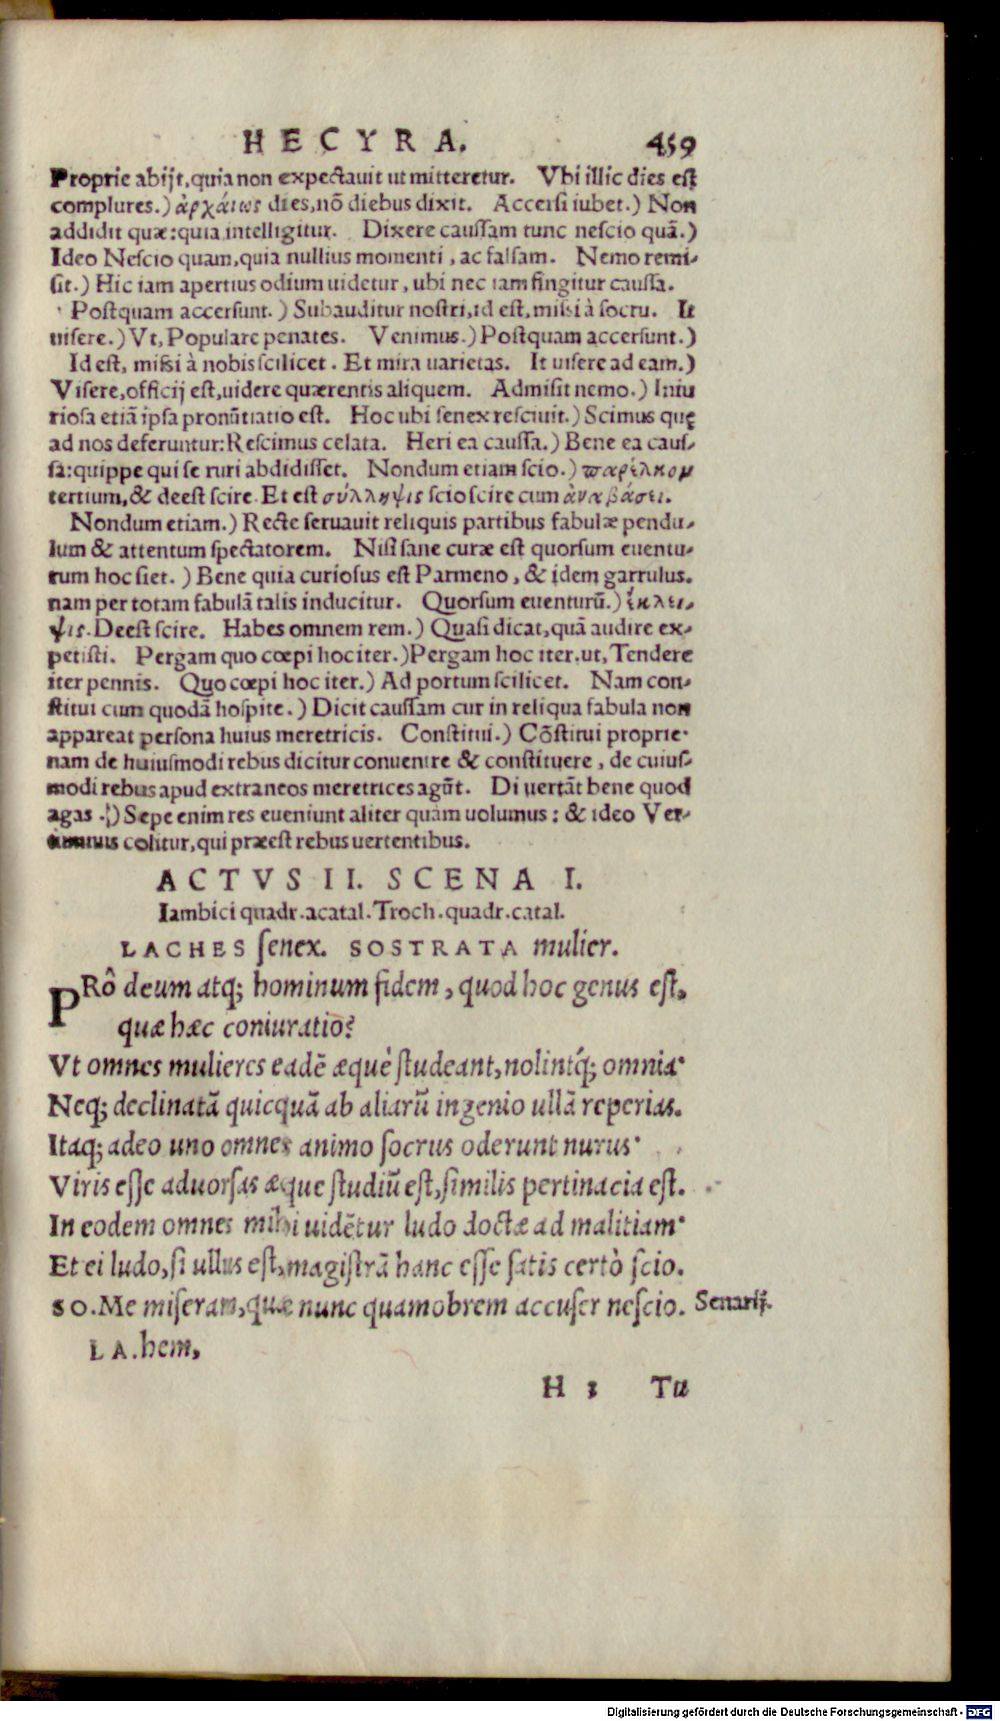 HECYRA. 459
Proprie abijt, quia non expectauit ut mitteretur. Vbi illic dies est
complures.) ἀρχάιως dies, nō diebus dixit. Accersi iubet.) Non
addidit quæ: quia intelligitur. Dixere caussam tunc nescio quã.)
Ideo Nescio quam, quia nullius momenti, ac falsam. Nemo remi-
sit.) Hic iam apertius odium uidetur, ubi nec iam fingitur caussa.
Postquam accersunt.) Subauditur nostri, id est, missi à socru. It
uisere.) Vt, Populare penates. Venimus.) Postquam accersunt.)
Id est, missi à nobis scilicet. Et mira uarietas. It uisere ad eam.)
Visere, officij est, uidere quærentis aliquem. Admisit nemo.) Iniu
riosa etiã ipsa pronũtiatio est. Hoc ubi senex resciuit.) Scimus quę
ad nos deferuntur: Rescimus celata. Heri ea caussa.) Bene ea caus-
sa: quippe qui se ruri abdidisset. Nondum etiam scio.) παρέλκομ
tertium, & deest scire. Et est σύλληψις scio scire cum ἀναβάσει.
Nondum etiam.) Recte seruauit reliquis partibus fabulæ pendu-
lum & attentum spectatorem. Nisi sane curæ est quorsum euentu-
rum hoc siet.) Bene quia curiosus est Parmeno, & idem garrulus.
nam per totam fabulã talis inducitur. Quorsum euenturũ.) ἔκλει-
ψις. Deest scire. Habes omnem rem.) Quasi dicat, quã audire ex-
petisti. Pergam quo cœpi hoc iter.) Pergam hoc iter. ut, Tendere
iter pennis. Quo cœpi hoc iter.) Ad portum scilicet. Nam con-
stitui cum quodã hospite.) Dicit caussam cur in reliqua fabula non
appareat persona huius meretricis. Constitui.) Cōstitui proprie·
nam de huiusmodi rebus dicitur conuenire & constituere, de cuius-
modi rebus apud extraneos meretrices agũt. Di uertãt bene quod
agas.) Sepe enim res eueniunt aliter quàm uolumus: & ideo Ver-
tumnus colitur, qui præest rebus uertentibus.
ACTVS II. SCENA I.
Iambici quadr. acatal. Troch. quadr. catal.
LACHES senex. SOSTRATA mulier.
PRô deum atq; hominum fidem, quod hoc genus est,
quæ hæc coniuratio?
Vt omnes mulieres eadẽ æquè studeant, nolintq́; omnia·
Neq; declinatã quicquã ab aliarũ ingenio ullã reperias.
Itaq; adeo uno omnes animo socrus oderunt nurus·
Viris esse aduorsas æque studiũ est, similis pertinacia est.
In eodem omnes mihi uidẽtur ludo doctæ ad malitiam·
Et ei ludo, si ullus est, magistrã hanc esse satis certò scio.
SO. Me miseram, quæ nunc quamobrem accuser nescio. Senarij.
LA. hem,
H 3 Tu
Digitalisierung gefördert durch die Deutsche Forschungsgemeinschaft - DFG